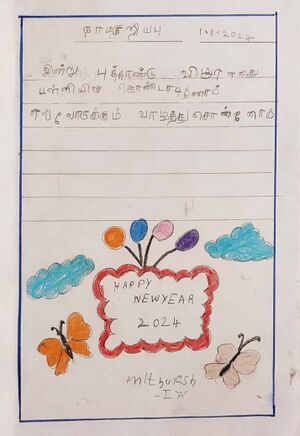 நாட்குறிப்பு 1.1.2024
இன்று புத்தாண்டு விழா எனது
பள்ளியில் கொண்டாடினோம்
எல்லோருக்கும் வாழ்த்து சொன்னோம்
HAPPY
NEWYEAR
2024
Mithuresh
- I 'A'